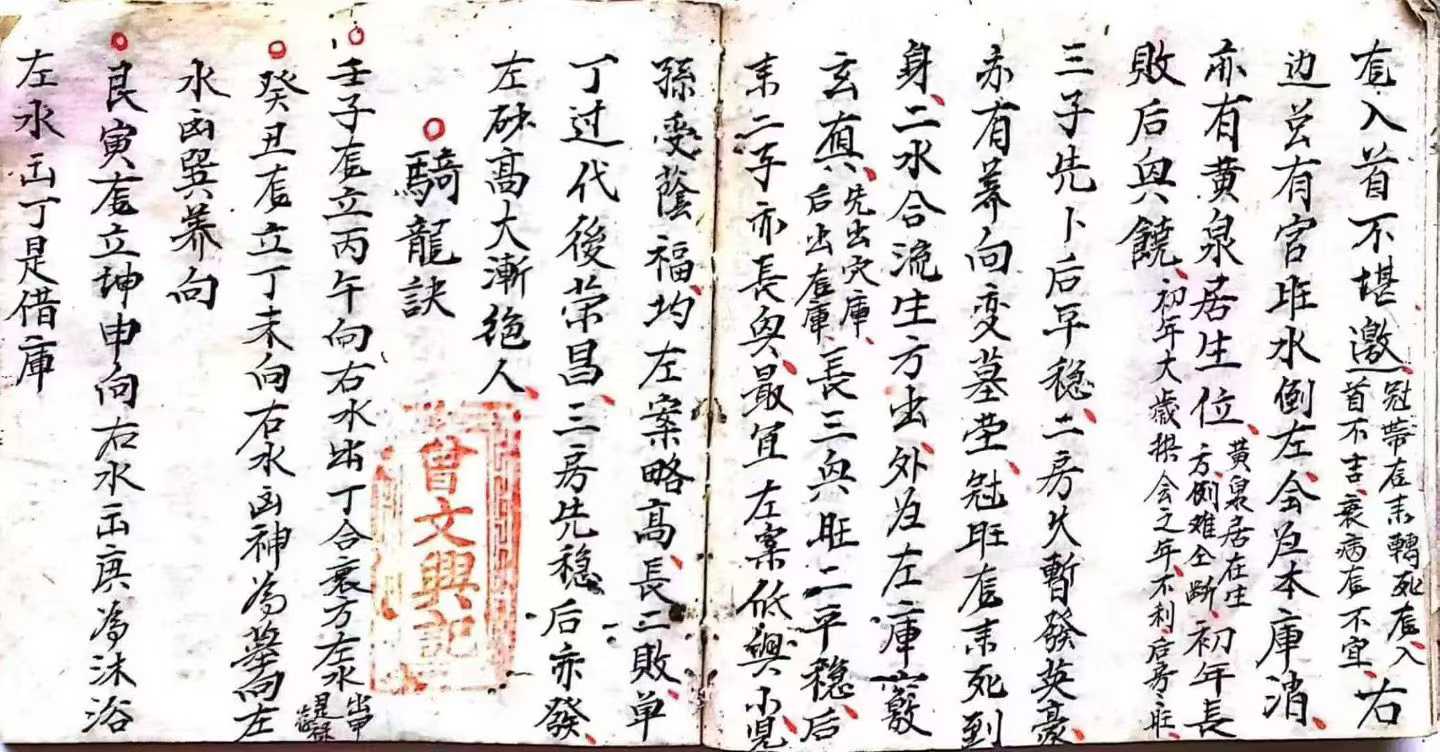 入首不堪邀冠帶在來轉死入首不吉衰病不宜右
边有官旺水倒左会为本庫消
亦有黄泉居生位黄泉居在生方倒难全断初年長
敗后與饒初年大歲拱会之年不利后房旺
三子先卜后平穏二房久暫發英豪
亦有養向变墓茔冠旺來死到
身二水合流生方出外为左庫
玄真先出穴庫后出庫長三與旺二平穏后
来二子亦長與最宜左案低興小兒
孫受蔭福均左案略高長二敗单
丁过代後荣昌三房先穏后亦發
左砂高大漸絶人
騎龍訣
曾文興記
壬子立丙午向右水出丁合衰方左水出甲是禄
癸丑立丁未向右水凶神為墓向左
水凶巽养向
艮寅立坤申向右水出庚為沐浴
左水出丁是借庫